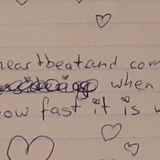 heartbeat and com
when
how fast it is w